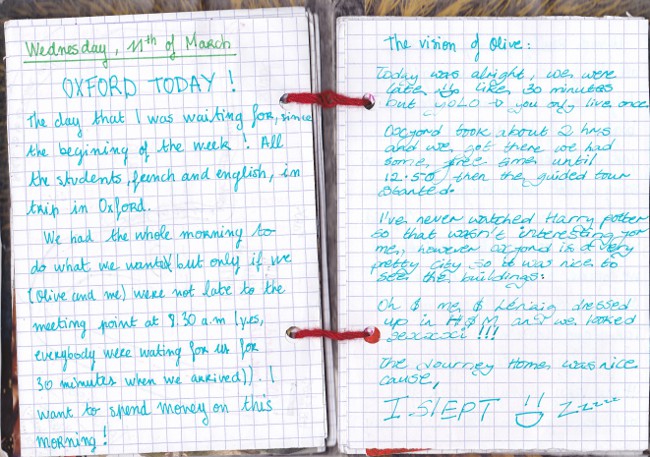 Wednesday, 11th of March
OXFORD TODAY !
The day that I was waiting for, since
the begining of the week ! All
the students, french and english, in
trip in Oxford.
We had the whole morning to
do what we wanted but only if we
(Olive and me) were not late to the
meeting point at 8.30 a.m (yes,
everybody were wating for us for
30 minutes when we arrived)). I
want to spend money on this
morning !
The vision of Olive :
Today was alright, we were
late by like 30 minutes
but YOLO → you only live once
Oxford took about 2 hrs
and we got there we had
some, free time until
12.50, then the guided tour
started.
I've never watched Harry potter
so that wasn't interesting for
me, however oxford is a very
pretty city so it was nice to
see the buildings.
Oh & me & Lénaïg dressed
up in H&M and we looked
sexxxxi !!!
The Journey Home was nice
cause,
I SLEPT Zzzzz